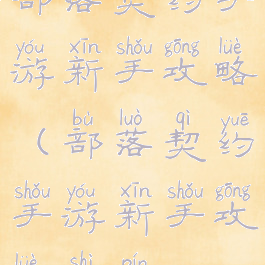 部落契约手
yóu xīn shǒu gōng lüè
游新手攻略
bù luò qì yuē
（部落契约
shǒu yóu xīn shǒu gōng
手游新手攻
lüè shì pín